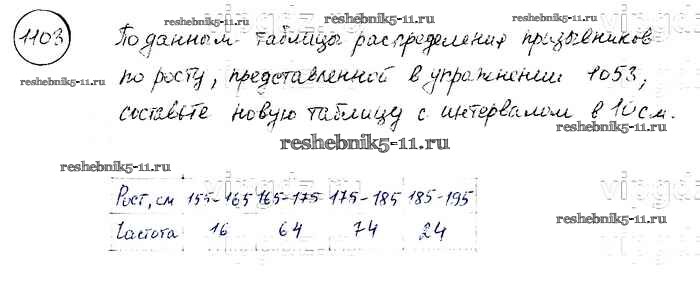 1103
По данным таблицы распределения призывников
reshebnik5-11.ru
по росту, представленной в упражнении 1053,
составьте новую таблицу с интервалом в 10 см.
reshebnik5-11.ru
Рост, см 155-165 165-175 175-185 185-195
Частота 16 64 74 24
reshebnik5-11.ru
reshebnik5-11.ru
reshebnik5-11.ru
reshebnik5-11.ru
vipgdz
vipgdz